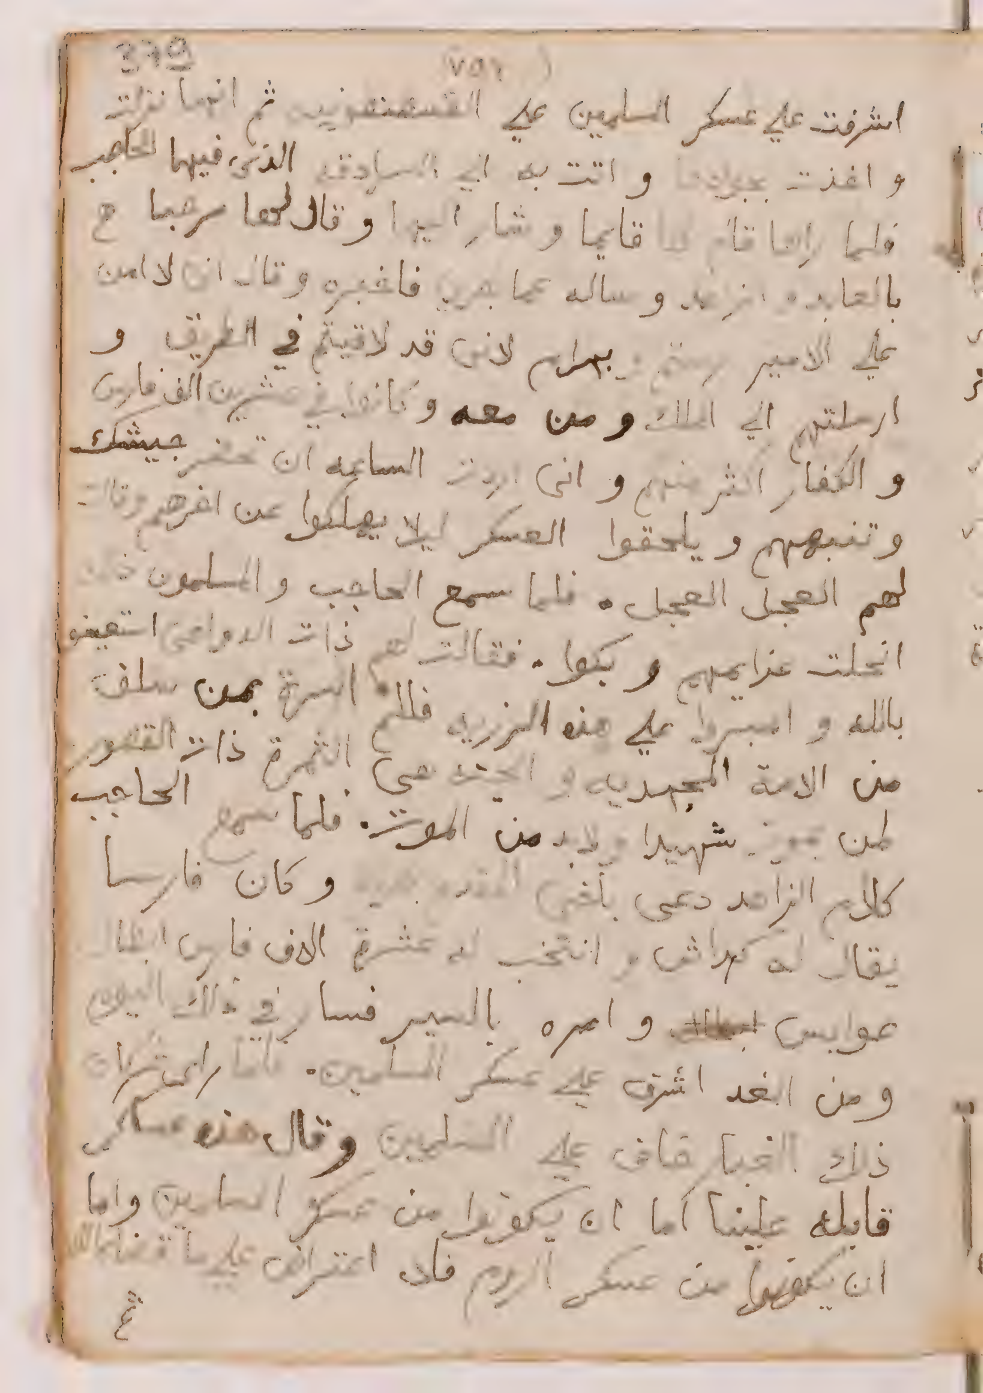 379
(٧٥٦)
اشرفت علي عسكر المسلمين علي القسطنطونيه ثم انها نزلت
و اخذت بجوادها و اتت به الي السرادقه الذى فيها الحاجب
فلما راها قام لها قايما و شار اليها و قال لها مرحبا ح
بالعابد و الزاهد و ساله عما جرى فاخبره و قال انى لا امن
علي الامير رستم و بهرام لانى قد لاقيتم في الطريق و
ارسلتهم الي الملك و من معه و كانوا في عشرين الف فارس
و الكفار اكثر منهم و انى اردت الساعه ان تحضر جيشك
و تنبههم و يلحقوا العسكر ليلا يهلكوا عن اخرهم وقالت
لهم العجل العجل. فلما سمع الحاجب و المسلمون ذلك
انحلت عزايمهم و بكوا. فقالت لهم ذات الدواهى استعينو
بالله و اصبروا علي هذه الرزيه فلكم اسوة بمن سلف
من الامة المحمديه و الجنه هى الثمرة ذات القصور
لمن يموت شهيدا ولابد من الموت. فلما سمع الحاجب
كلام الزاهد دعى باخى بهرام و كان فارسا
يقال له كهراش و انتخب له عشرة الاف فارس ابطال
عوابس و امره بالسير فسار في ذلك اليوم
و من الغد اشرف علي عسكر المسلمين. فلما راى شركان
ذلك الغبار خاف علي المسلمين وقال هذه عساكر
قابله علينا اما ان يكونوا من عسكر المسلمين واما
ان يكونوا من عسكر الروم فلا اعتراض علي ما قضاه الله
ثم